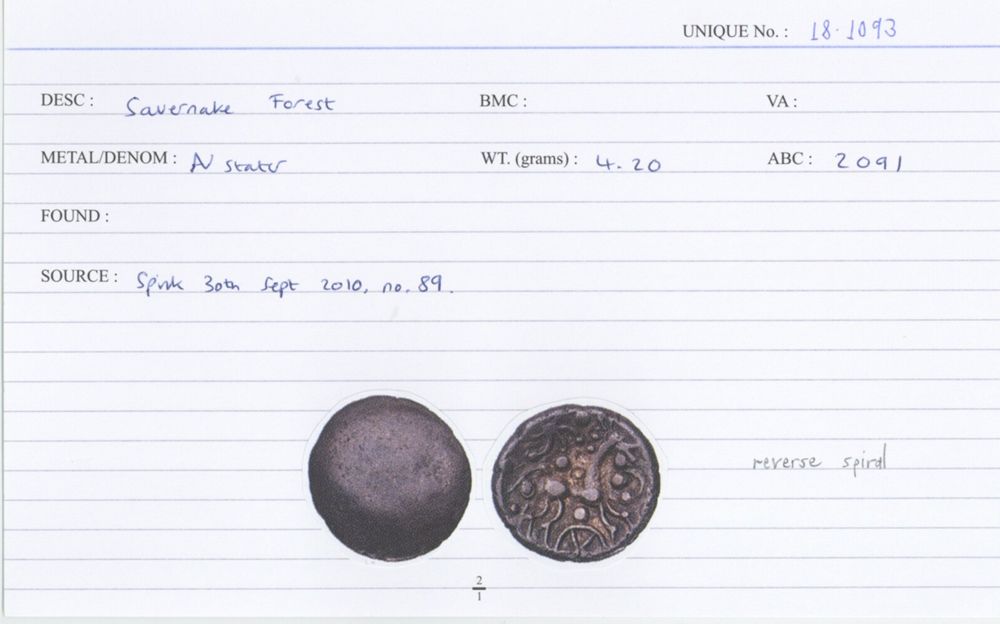 UNIQUE No. : 18.1093
DESC : Savernake Forest BMC : VA :
METAL/DENOM : AV stater WT. (grams) : 4.20 ABC : 2091
FOUND :
SOURCE : Spink 30th Sept 2010, no. 89.
reverse spiral
2
1